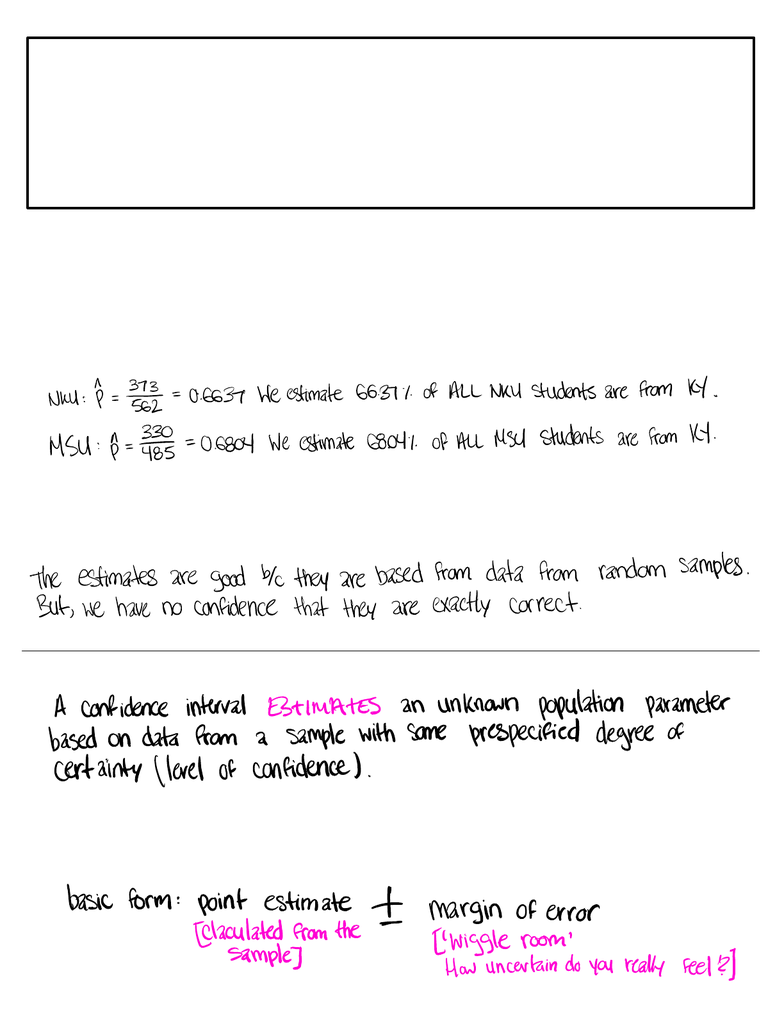 NKU: p̂ = 373/562 = 0.6637 We estimate 66.37% of ALL NKU students are from KY.
MSU: p̂ = 330/485 = 0.6804 We estimate 68.04% of ALL MSU students are from KY.
The estimates are good b/c they are based from data from random samples.
But, we have no confidence that they are exactly correct.
A confidence interval ESTIMATES an unknown population parameter
based on data from a sample with some prespecified degree of
certainty (level of confidence).
basic form: point estimate ± margin of error
[Claculated from the
sample]
['wiggle room'
How uncertain do you really feel?]